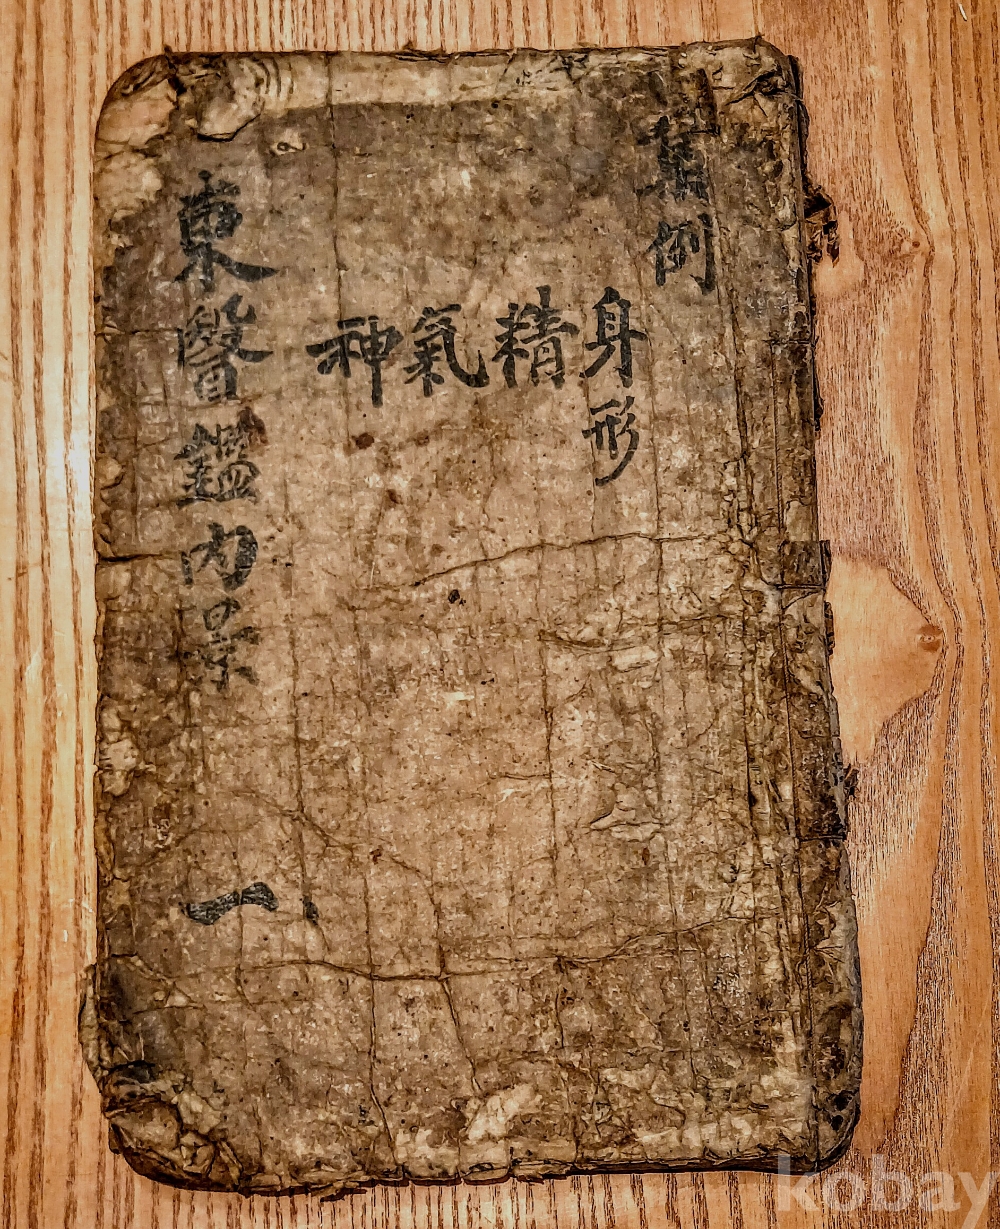 集例
身形
精
氣
神
東醫鑑內景 一
kobay